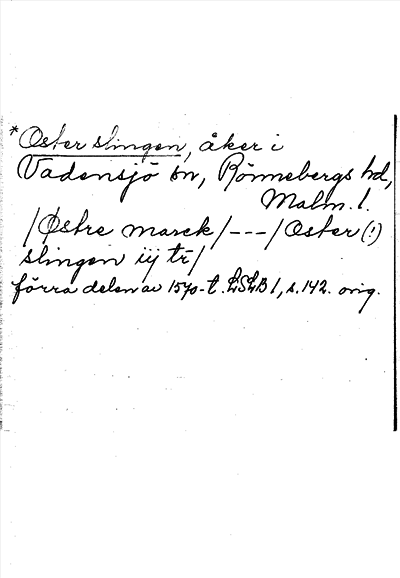 *Oster slingen, åker i
Vadensjö sn, Rönnebergs hd,
Malm. l.
/Østre marck/---/Oster(!)
slingen iij tr/
förra delen av 1570-t. LSLB I, s. 142. orig.